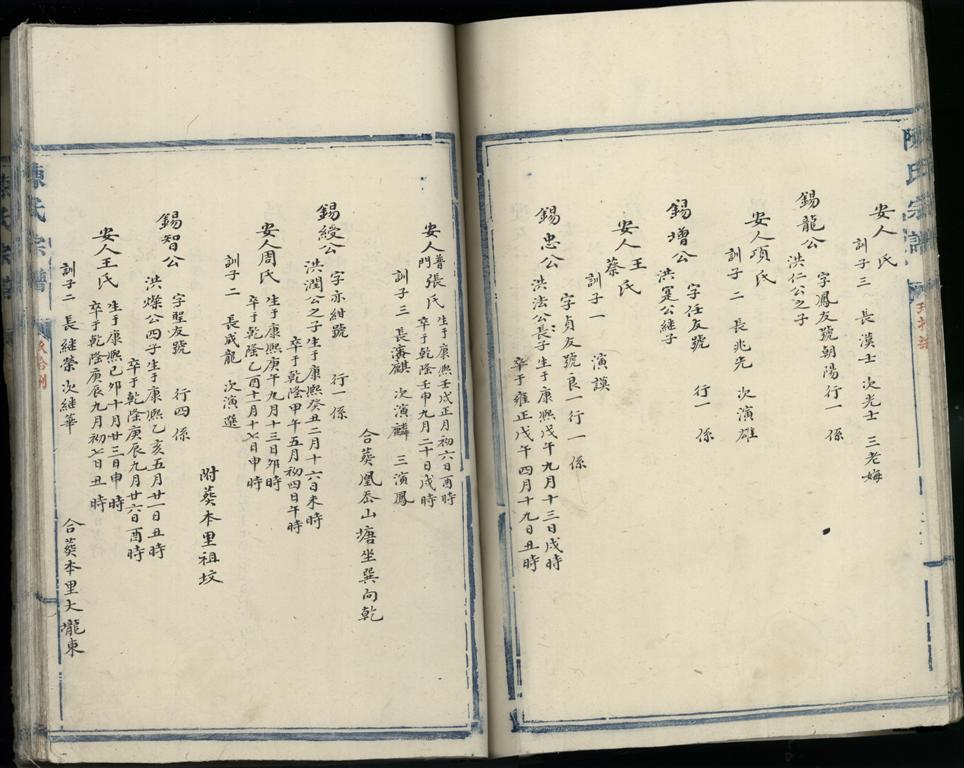 陳氏宗譜
安人 氏
訓子三 長漢士 次光士 三老娒
錫龍公 字鳳友號朝陽行一 係
洪仁公之子
安人項氏
訓子二 長兆先 次演雄
錫增公 字任友號 行一 係
洪寔公継子
安人王蔡氏
訓子一 演謨
錫忠公 字貞友號良一行一係
洪法公長子生于康熙戊午九月十三日戌時
卒于雍正戊午四月十九日丑時
安人普門張氏 生于康熙壬戌正月初六日酉時
卒于乾隆壬申九月二十日戌時
訓子三 長演麒 次演麟 三演鳳
合葵凰岙山塘坐巽向乾
錫綬公 字亦紺號 行一係
洪潤公之子生于康熙癸丑二月十六日未時
卒于乾隆甲午五月初四日午時
安人周氏 生于康熙庚午九月十三日卯時
卒于乾隆乙酉十月十七日申時
訓子二 長成龍 次演選
附葵本里祖坟
錫智公 字聖友號 行四 係
洪燦公四子生于康熙乙亥五月廿一日丑時
卒于乾隆庚辰九月廿六日酉時
安人王氏 生于康熙己卯十月廿三日申時
卒于乾隆庚辰九月初七日丑時
訓子二 長継榮 次継華
合葵本里大壠東
陳氏宗譜